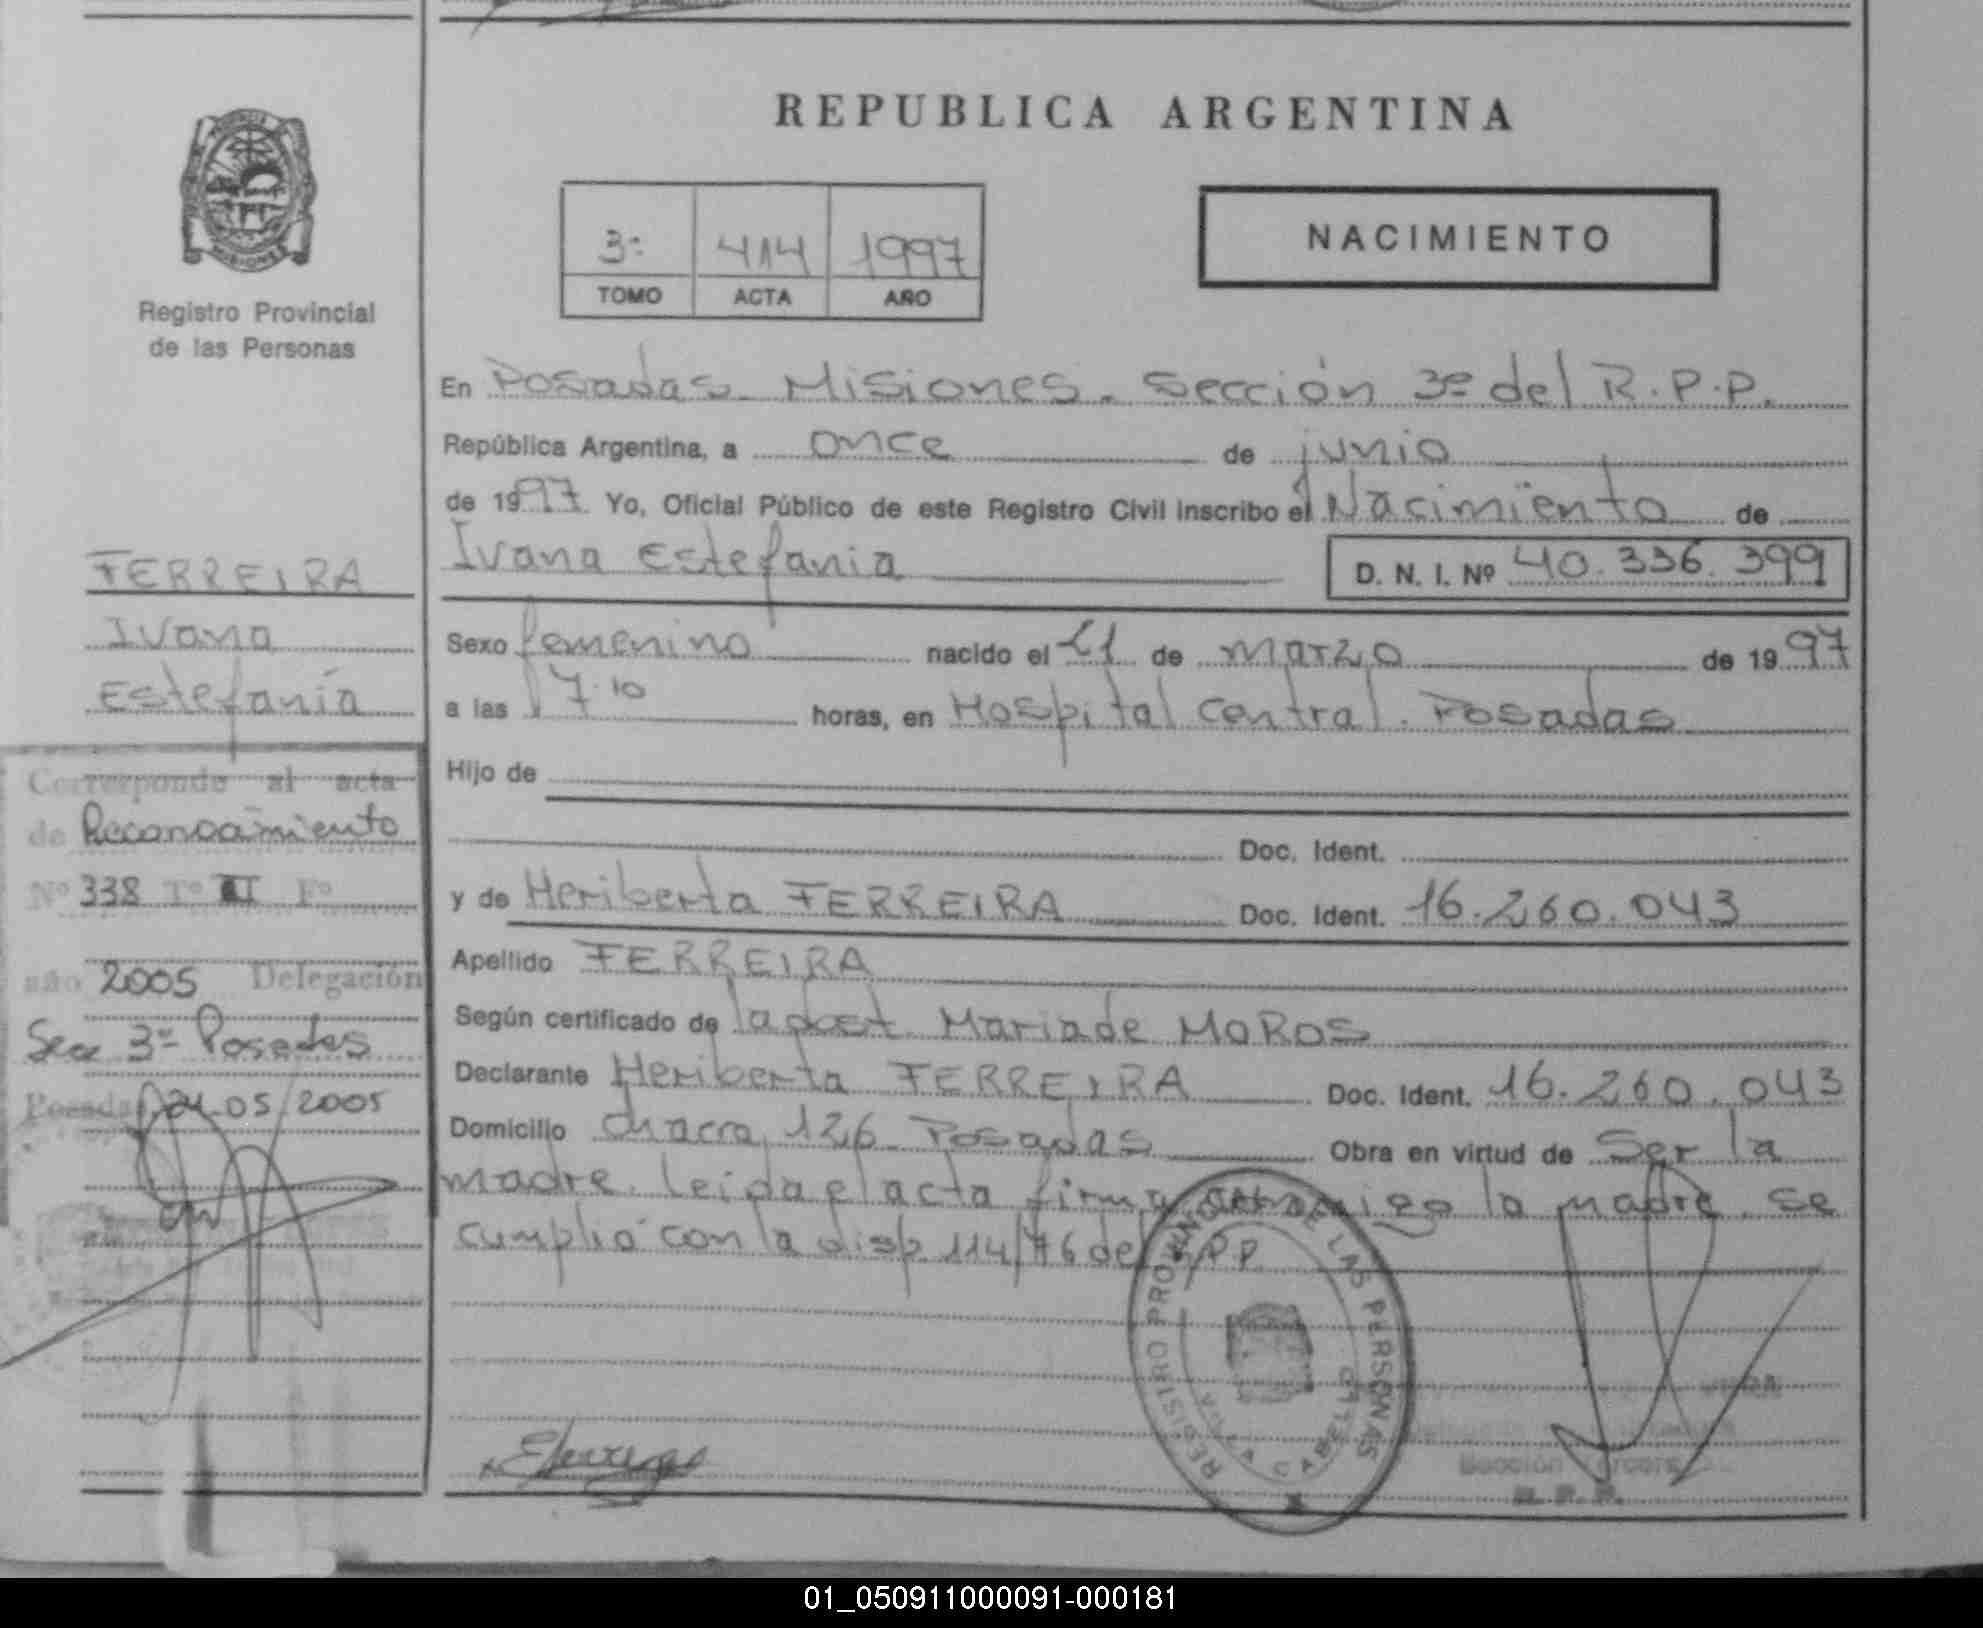 REPUBLICA ARGENTINA
3º 414 1997
TOMO ACTA AÑO
NACIMIENTO
PROVINCIA MISIONES
Registro Provincial
de las Personas
En Posadas. Misiones. Sección 3º del R.P.P.
República Argentina, a once de junio
de 1997. Yo, Oficial Público de este Registro Civil inscribo el Nacimiento de
Ivana Estefania
D. N. I. Nº 40.336.399
Sexo femenino nacido el 21 de marzo de 1997
a las 17.10 horas, en Hospital Central. Posadas
Hijo de
Doc. Ident.
y de Heriberta FERREIRA Doc. Ident. 16.260.043
Apellido FERREIRA
Según certificado de la Maria de MOROS
Declarante Heriberta FERREIRA Doc. Ident. 16.260.043
Domicilio Chacra 126 Posadas Obra en virtud de Ser la
madre. leida el acta firma la madre. se
cumplió con la disp. 114/76 del R.P.P.
FERREIRA
Ivana
Estefanía
Corresponde al acta
de Reconocimiento
Nº 338 Tº II Fº
año 2005 Delegación
Sec 3º Posadas
Posadas, 05/2005
REGISTRO PROVINCIAL DE LAS PERSONAS
VILLA CABELLO
Sección Tercera
R. P. P.
01_050911000091-000181